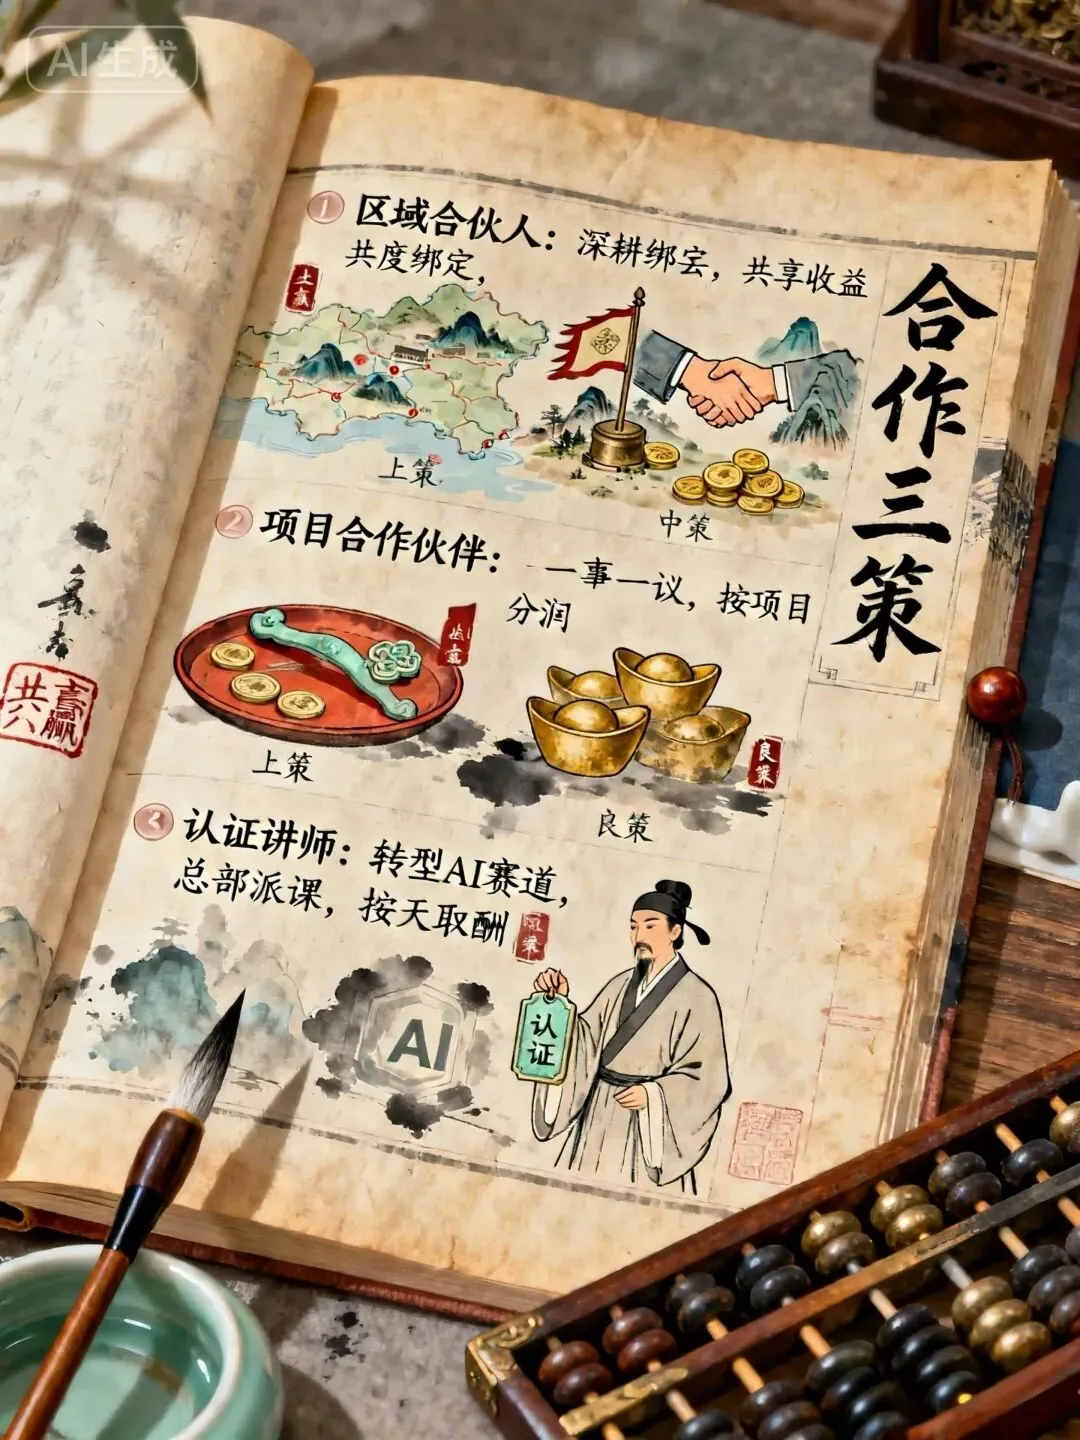 AI生成
合作三策
1 区域合伙人：深耕绑定，共享收益
共度绑定，
上策
中策
2 项目合作伙伴：一事一议，按项目
分润
上策
良策
良策
3 认证讲师：转型AI赛道，
总部派课，按天取酬
AI
认证
共赢